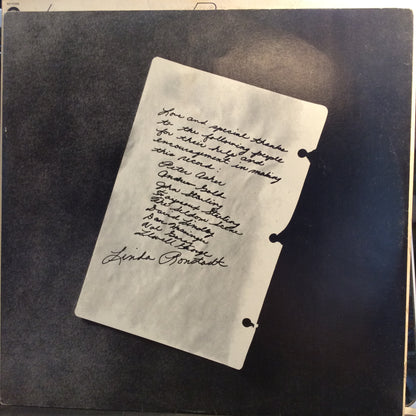 Love and special thanks
to the following people
for their help and
encouragement in making
this record:
Peter Asher
Andrew Gold
John Starling
Fayssoux Starling
The Seldom Scene
David Lindley
Dan
Neil
Lowell George
Linda Ronstadt